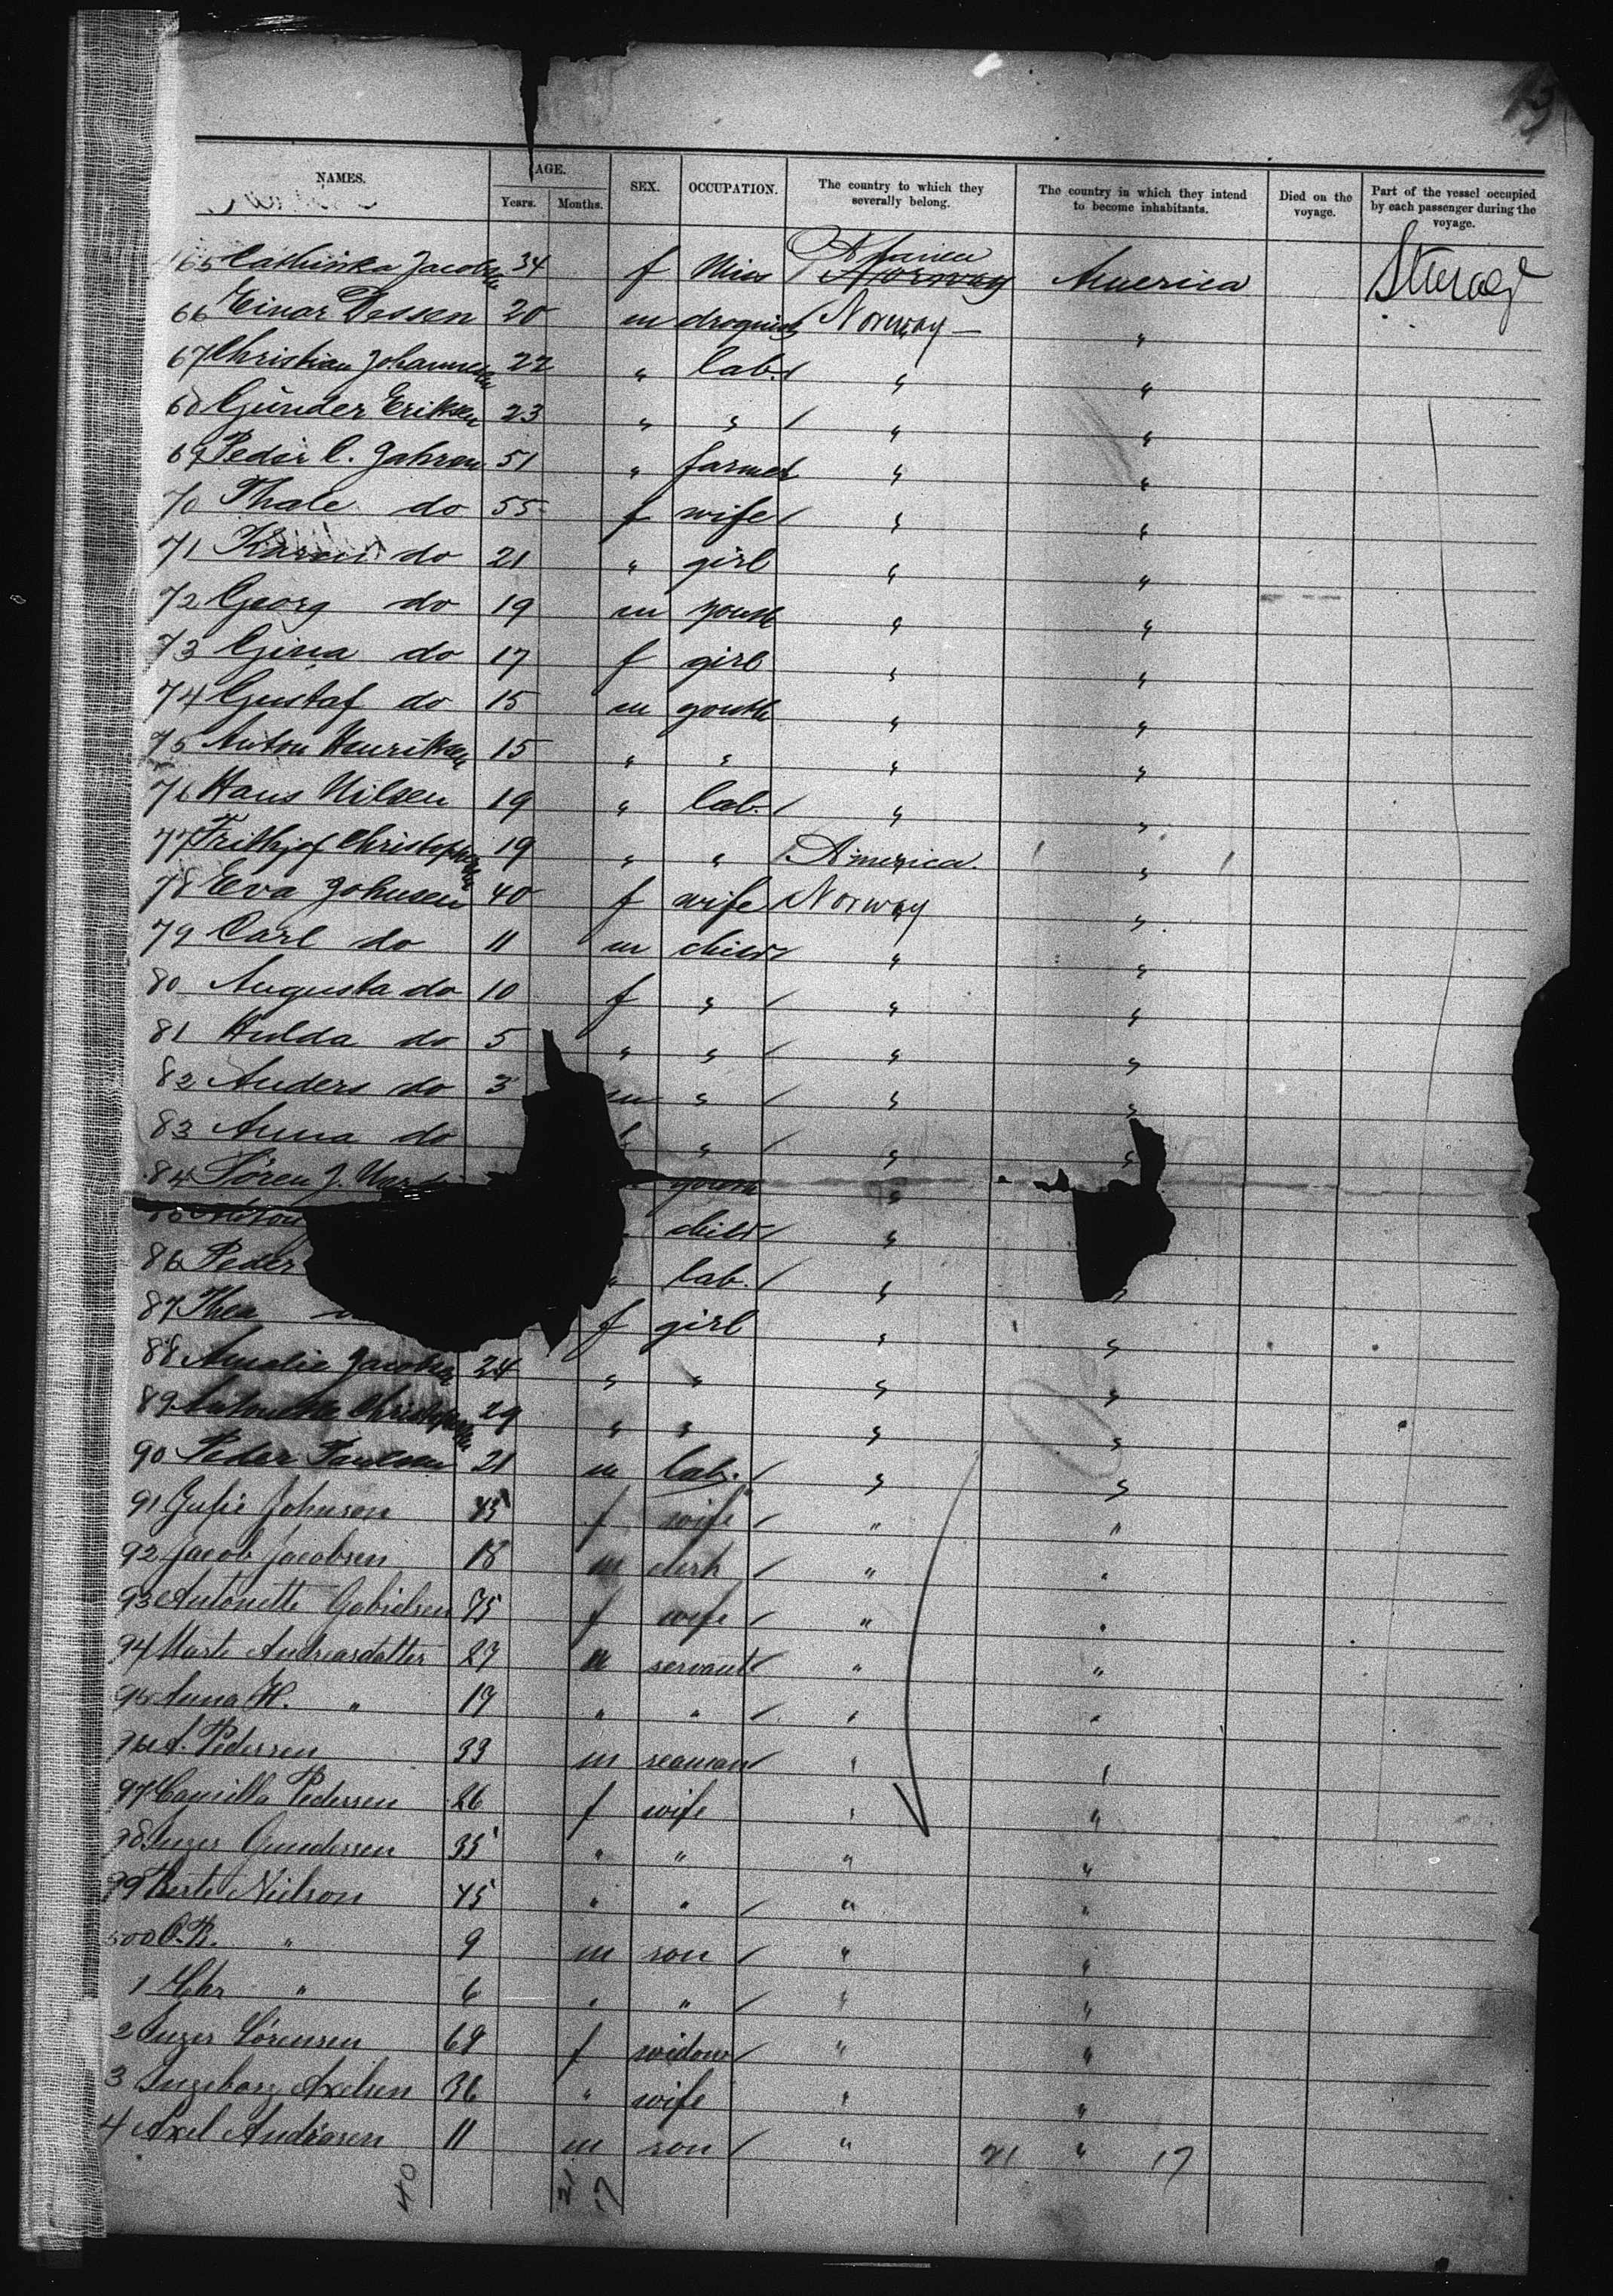 13
NAMES. AGE. SEX. OCCUPATION. The country to which they severally belong. The country in which they intend to become inhabitants. Died on the voyage. Part of the vessel occupied by each passenger during the voyage.
Years. Months.
465 Cathinka Jacobsen 34 f Miss Norway America
66 Einar Dessen 20 m Norway — "
67 Christian Johannesen 22 " lab. " "
68 Gunder Eriksen 23 " " " "
69 Peder C. Jahren 51 " farmer " "
70 Thale do 55 f wife " "
71 Karen do 21 " girl " "
72 Georg do 19 m youth " "
73 Gina do 17 f girl " "
74 Gustaf do 15 m youth " "
75 Anton Henriksen 15 " " " "
76 Hans Nilsen 19 " lab. " "
77 Frithjof Christophersen 19 " " America "
78 Eva Johnsen 40 f wife Norway "
79 Carl do 11 m child " "
80 Augusta do 10 f " " "
81 Hulda do 5 " " " "
82 Anders do 3 m " " "
83 Anna do f " " "
84 Sören J. youth "
child "
86 Peder " lab. " "
87 Thea f girl " "
88 Amalie Jacobsen 24 " " " "
89 29 " " " "
90 Peder Paulsen 21 m lab. " "
91 Johnson 45 f wife " "
92 Jacob Jacobsen 18 m clerk " "
93 Antonette Gabrielsen 75 f wife " "
94 Marte Andreasdatter 27 servant " "
95 Anna H. " 19 " " " "
96 A. Pedersen 33 m seaman " "
97 Camilla Pedersen 26 f wife " "
98 Inger Gundersen 35 " " " "
99 Berte Neilson 45 " " " "
500 O.B. " 9 m son " "
1 Chr " 6 " " " "
2 Inger Sörensen 69 f widow " "
3 Ingeborg Axelsen 36 " wife " "
4 Axel Andräsen 11 m son " 21 " 17
40 21 17